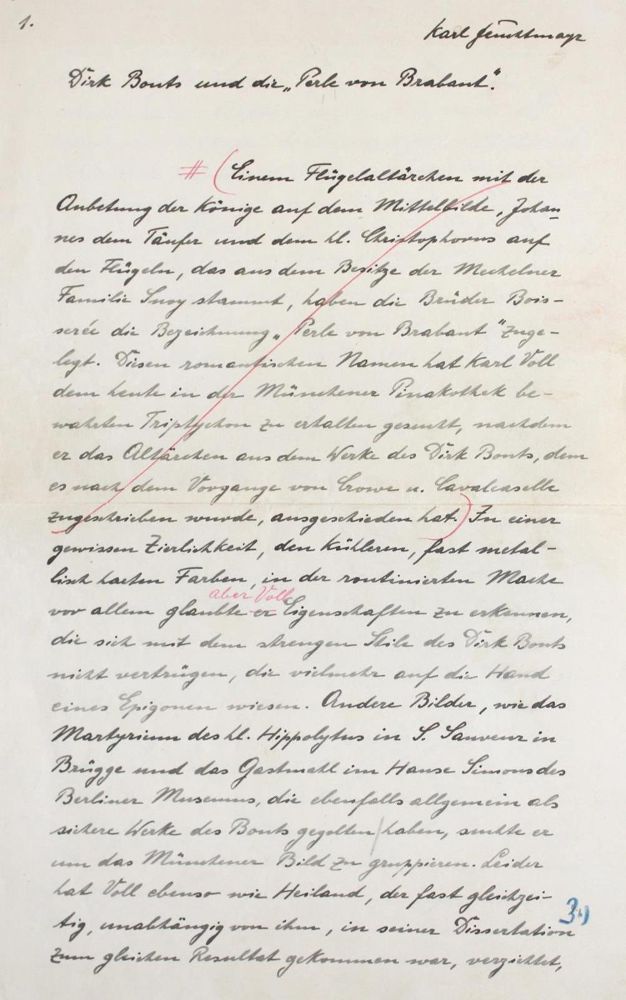 1.
Karl Feuchtmayr
Dirk Bouts und die „Perle von Brabant".
# (Einem Flügelaltärchen mit der
Anbetung der Könige auf dem Mittelbilde, Johan-
nes dem Täufer und dem hl. Christophorus auf
den Flügeln, das aus dem Besitze der Mechelner
Familie Snoy stammt, haben die Brüder Bois-
serée die Bezeichnung „Perle von Brabant" zuge-
legt. Diesen romantischen Namen hat Karl Voll
dem heute in der Münchener Pinakothek be-
wahrten Triptychon zu erhalten gesucht, nachdem
er das Altärchen aus dem Werke des Dirk Bouts, dem
es nach dem Vorgange von Crowe u. Cavalcaselle
zugeschrieben wurde, ausgeschieden hat.) In einer
gewissen Zierlichkeit, den kühleren, fast metal-
lisch harten Farben, in der routinierten Mache
aber Voll
vor allem glaubte er Eigenschaften zu erkennen,
die sich mit dem strengen Stile des Dirk Bouts
nicht vertrügen, die vielmehr auf die Hand
eines Epigonen wiesen. Andere Bilder, wie das
Martyrium des hl. Hippolytus in S. Sauveur in
Brügge und das Gastmahl im Hause Simons des
Berliner Museums, die ebenfalls allgemein als
sichere Werke des Bouts gegolten haben, suchte er
um das Münchener Bild zu gruppieren. Leider
hat Voll ebenso wie Heiland, der fast gleichzei-
tig, unabhängig von ihm, in seiner Dissertation
zum gleichen Resultat gekommen war, verzichtet,